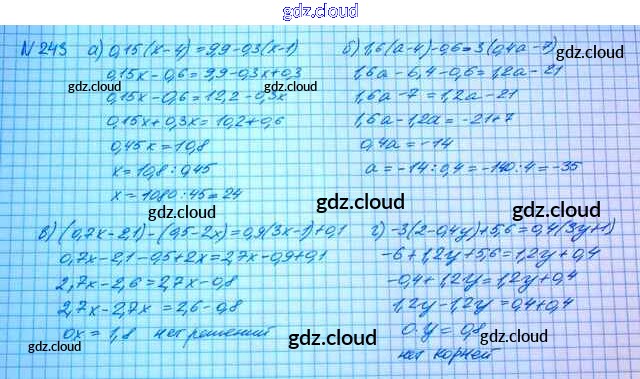 gdz.cloud
N 243 а) 0,15(x-4)=9,9-0,3(x-1) б) 1,6(a-4)-0,6=3(0,4a-7)
0,15x-0,6=9,9-0,3x+0,3 1,6a-6,4-0,6=1,2a-21
gdz.cloud gdz.cloud
0,15x-0,6=12,2-0,3x 1,6a-7=1,2a-21
0,15x+0,3x=10,2+0,6 1,6a-1,2a=-21+7
gdz.cloud
0,45x=10,8 0,4a=-14
x=10,8:0,45 a=-14:0,4=-140:4=-35
x=1080:45=24
gdz.cloud gdz.cloud
в) (0,7x-2,1)-(0,5-2x)=0,9(3x-1)+0,1 г) -3(2-0,4y)+5,6=0,4(3y+1)
gdz.cloud
0,7x-2,1-0,5+2x=2,7x-0,9+0,1 -6+1,2y+5,6=1,2y+0,4
gdz.cloud
2,7x-2,6=2,7x-0,8 -0,4+1,2y=1,2y+0,4
gdz.cloud
2,7x-2,7x=2,6-0,8 1,2y-1,2y=0,4+0,4
0x=1,8 нет решений 0·y=0,8
gdz.cloud gdz.cloud
нет корней
gdz.cloud